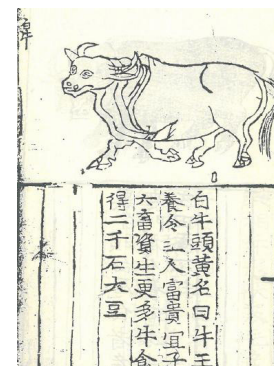 白牛頭黃名曰牛王
養令人富貴宜子
六畜資生更多牛
得二千石大豆